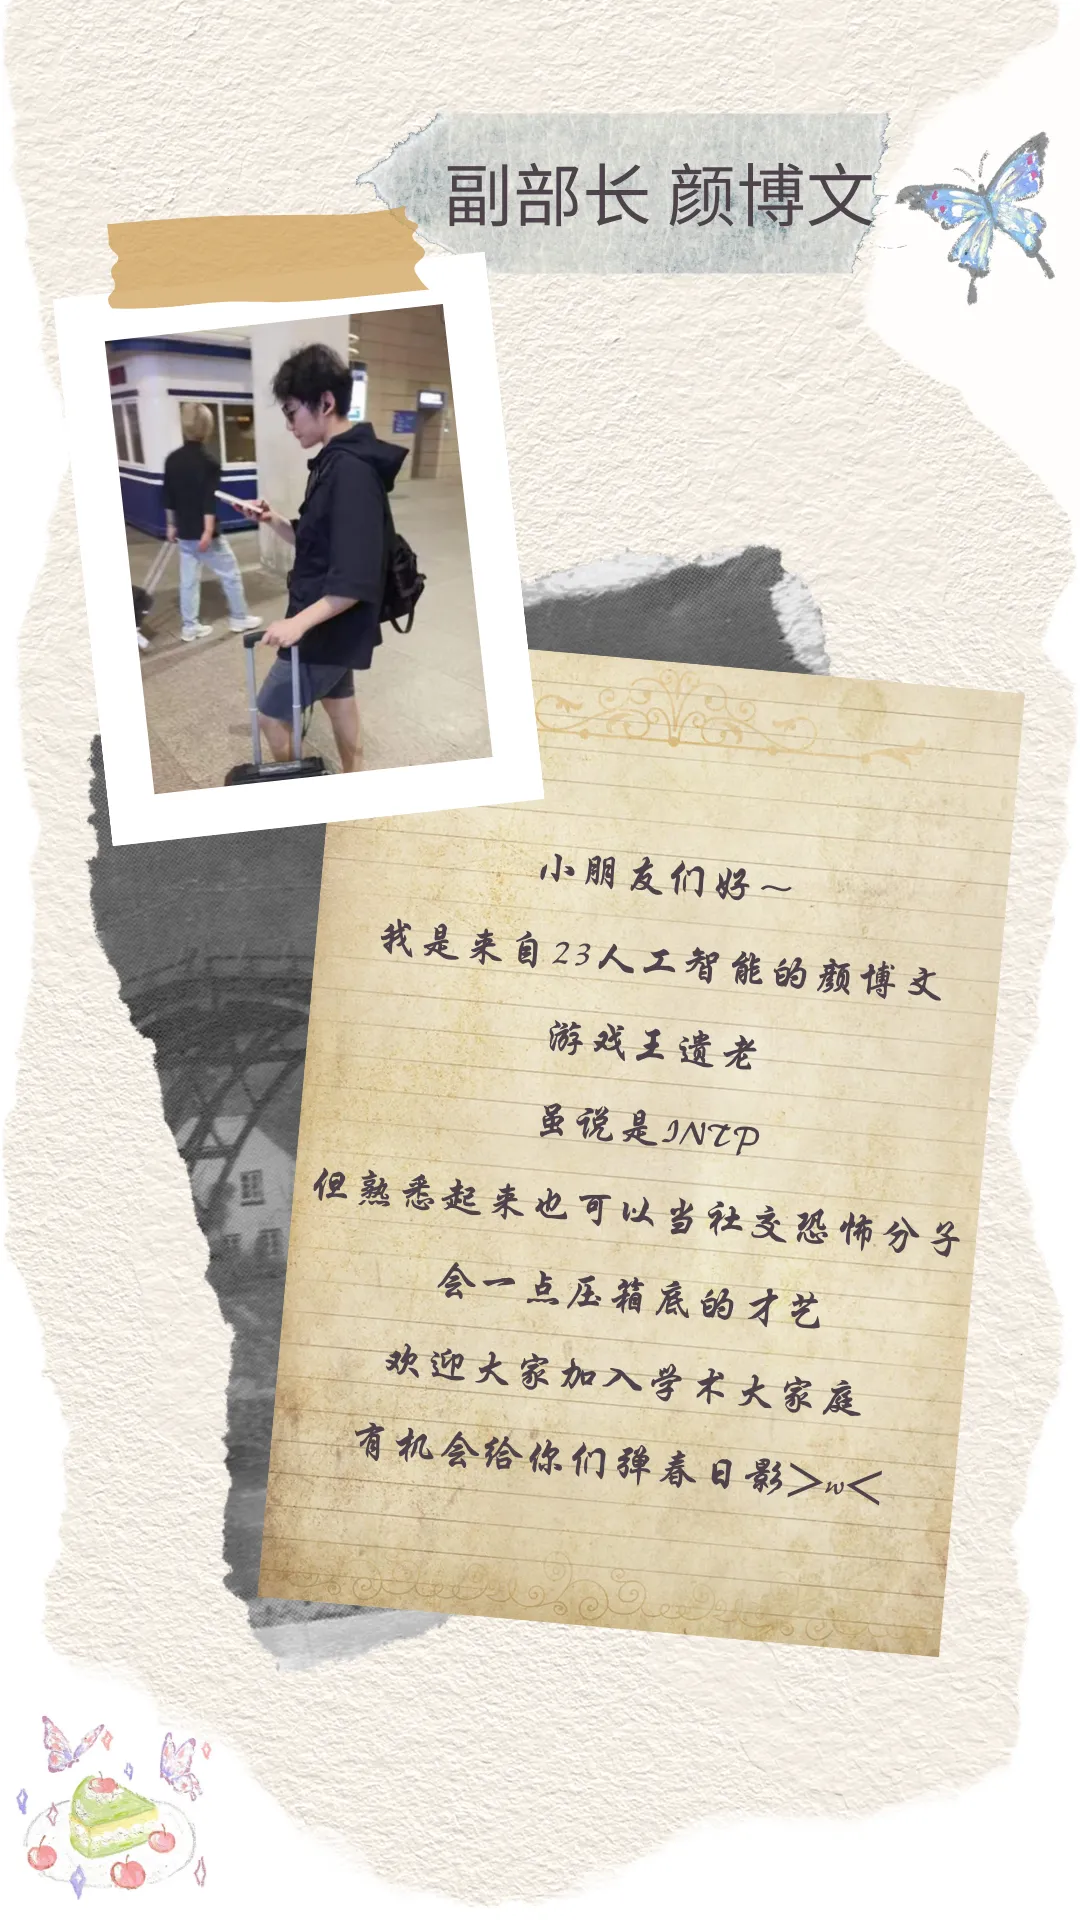 副部长 颜博文
小朋友们好~
我是来自23人工智能的颜博文
游戏王遗老
虽说是INTP
但熟悉起来也可以当社交恐怖分子
会一点压箱底的才艺
欢迎大家加入学术大家庭
有机会给你们弹春日影>w<